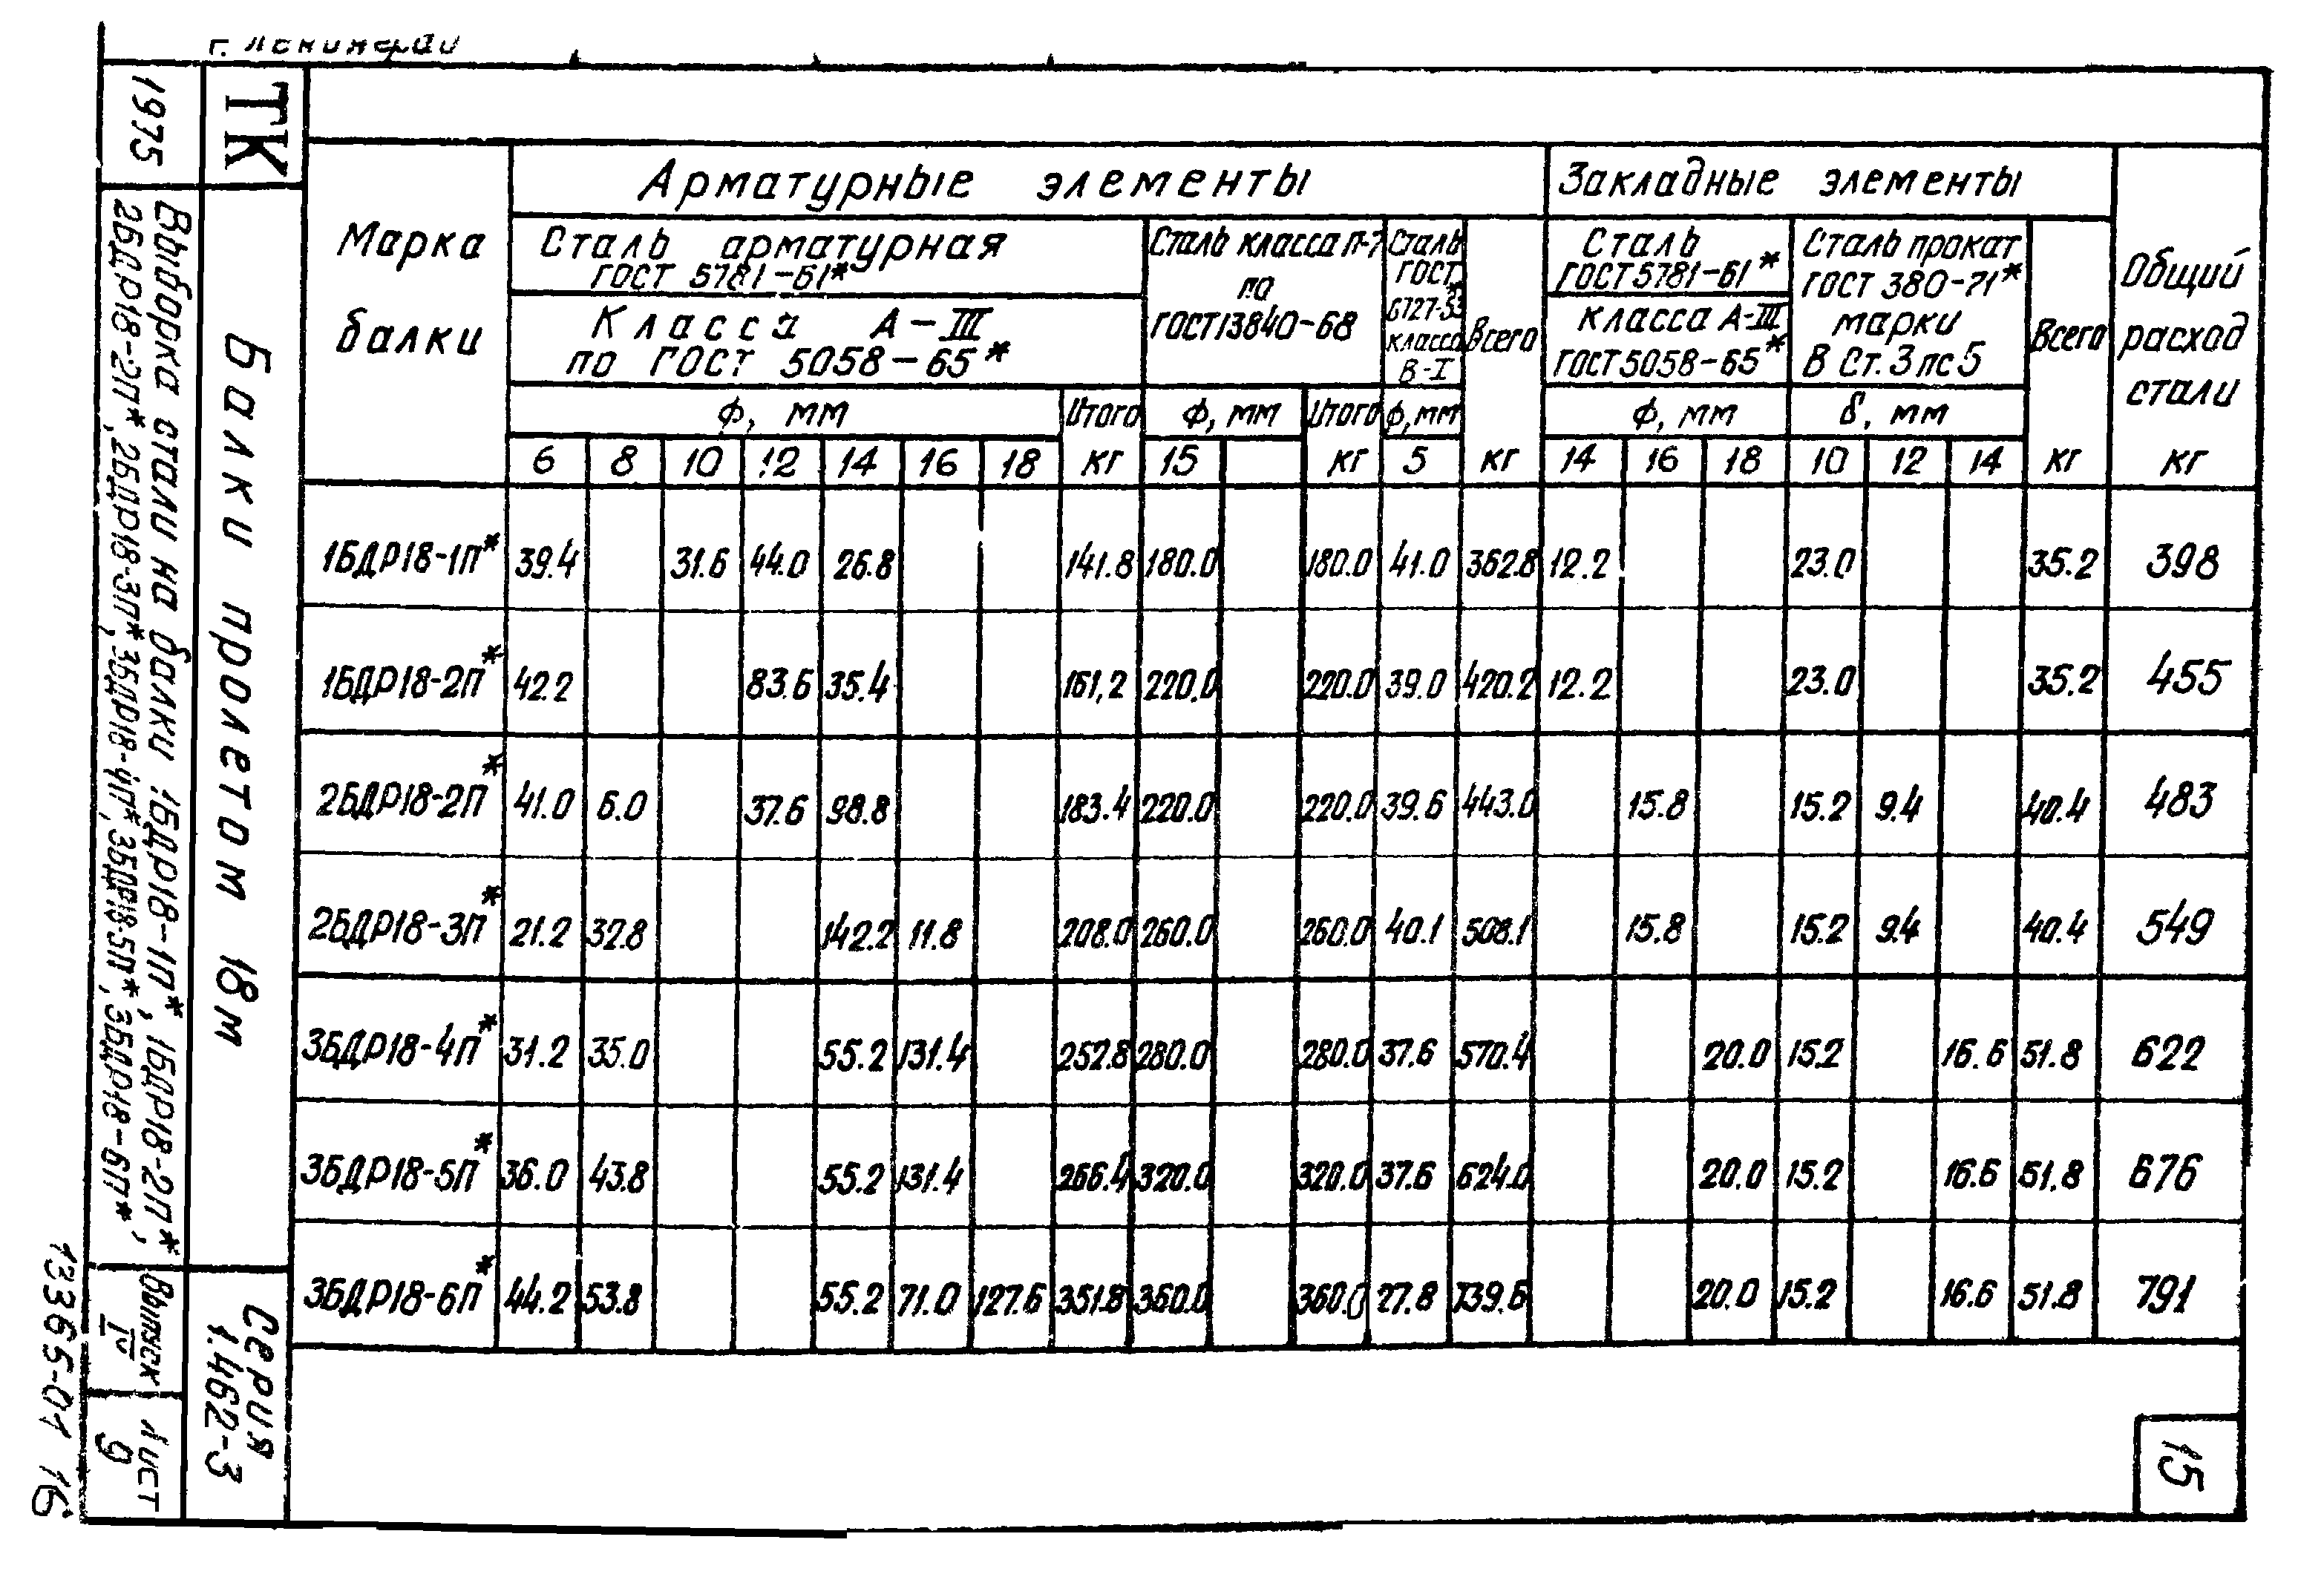 г. Ленинград
ТК
1975
Балки пролетом 18м
Выборка стали на балки 1БДР18-1П*, 1БДР18-2П*,
2БДР18-2П*, 2БДР18-3П*, 3БДР18-4П*, 3БДР18-5П*, 3БДР18-6П*
Серия
1.462-3
Выпуск
IV
Лист
9
13365-01 16
Марка балки
Арматурные элементы
Закладные элементы
Общий расход стали
кг
Сталь арматурная
ГОСТ 5781-61*
Класса А-III
по ГОСТ 5058-65*
Сталь класса П-7
по
ГОСТ13840-68
Сталь
ГОСТ
6727-53*
класса
В-I
Всего
Сталь
ГОСТ5781-61*
класса А-III
ГОСТ5058-65*
Сталь прокат
ГОСТ 380-71*
марки
В Ст.3 пс 5
Всего
ф, мм Итого ф, мм Итого ф,мм ф, мм δ, мм
6 8 10 12 14 16 18 кг 15 кг 5 кг 14 16 18 10 12 14 кг кг
1БДР18-1П* 39.4 31.6 44.0 26.8 141.8 180.0 180.0 41.0 362.8 12.2 23.0 35.2 398
1БДР18-2П* 42.2 83.6 35.4 161,2 220.0 220.0 39.0 420.2 12.2 23.0 35.2 455
2БДР18-2П* 41.0 6.0 37.6 98.8 183.4 220.0 220.0 39.6 443.0 15.8 15.2 9.4 40.4 483
2БДР18-3П* 21.2 32.8 142.2 11.8 208.0 260.0 260.0 40.1 508.1 15.8 15.2 9.4 40.4 549
3БДР18-4П* 31.2 35.0 55.2 131.4 252.8 280.0 280.0 37.6 570.4 20.0 15.2 16.6 51.8 622
3БДР18-5П* 36.0 43.8 55.2 131.4 266.4 320.0 320.0 37.6 624.0 20.0 15.2 16.6 51.8 676
3БДР18-6П* 44.2 53.8 55.2 71.0 127.6 351.8 360.0 360.0 27.8 739.6 20.0 15.2 16.6 51.8 791
15